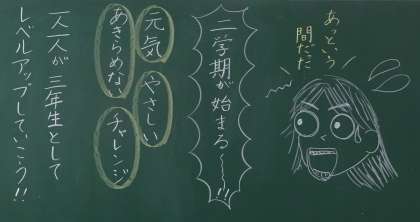 あっという
間だだ
二学期が始まる〜!!
元気 やさしい
あきらめない チャレンジ
一人一人が三年生として
レベルアップしていこう!!